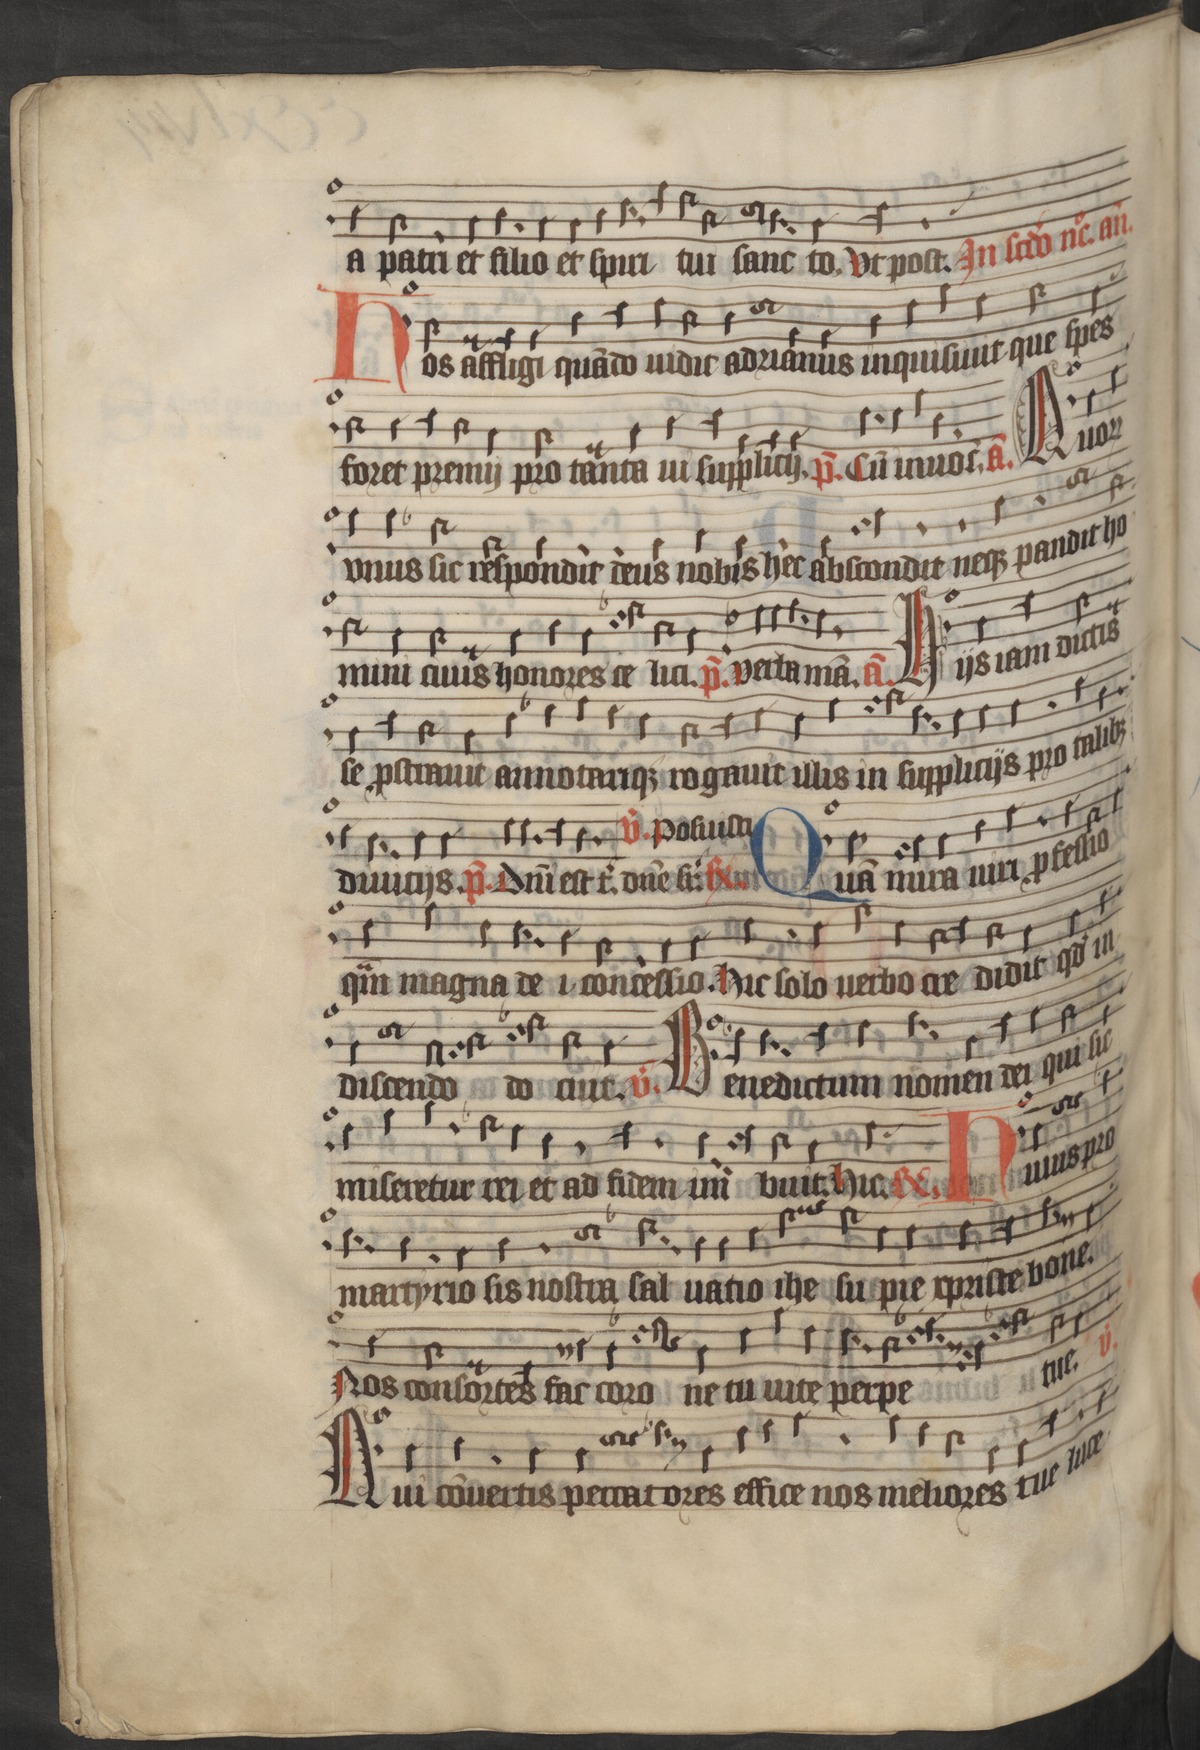 a patri et filio et spiri tui sanc to. Vt post. In scdo nc. an.
Hos affligi quādo uidit adrianus inquisiuit que spes
foret premij pro tanta ui supplicij. p̄. Cū inuoc. a.
vnus sic respondit deus nobis hec abscondit neqꝫ pandit ho
mini cuius honores ce lici. p̄. Verba mā. ā. Hijs iam dictis
se ꝓstrauit annotariqꝫ rogauit illis in supplicijs pro talibꝫ
v̄. Posuisti
diuicijs. p̄. Dnī est t̄. dn̄e Quā mira uiri ꝓfessio
qm̄ magna de i concessio. Hic solo uerbo cre didit qd' in
discendo do cuit. v̄. Benedictum nomen dei qui sic
miseretur rei et ad fidem im buit. Hic. Huius pro
martyrio sis nostra sal uatio ihe su pie xpriste bone.
Nos consortes fac coro ne tu uite perpe tue. v̄.
Qui cōuertis peccatores effice nos meliores tue luce